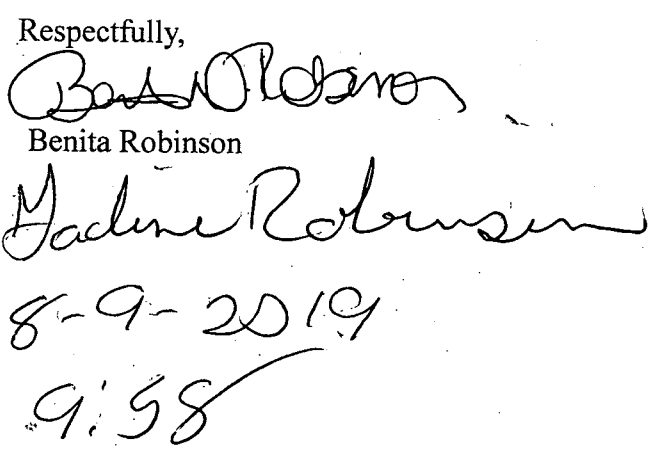 Respectfully,
Robinson
Benita Robinson
Robinson
8-9-2019
9:58